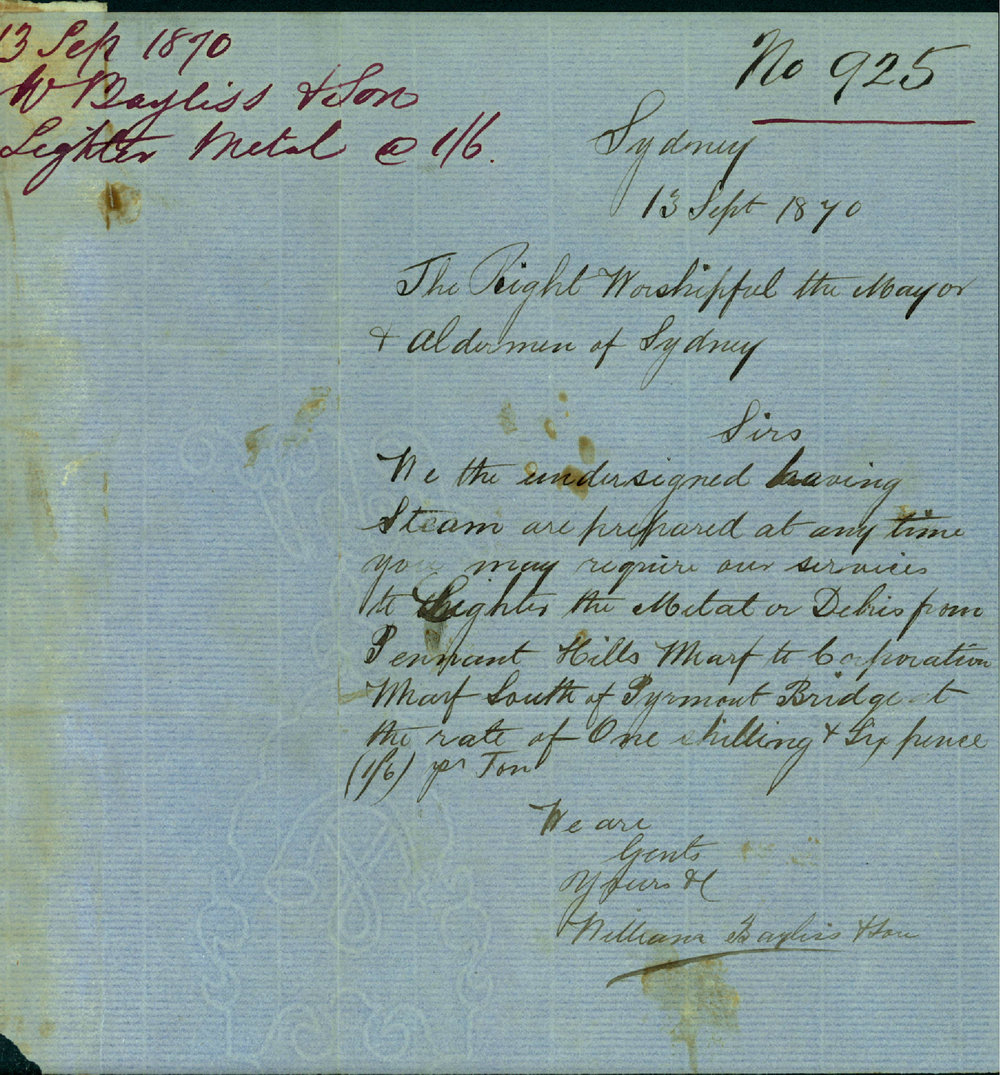 13 Sep 1870
W Bayliss & Son
Lighter Metal @ 1/6.
No 925
Sydney
13 Sept 1870
The Right Worshipful the Mayor
& Aldermen of Sydney
Sirs
We the undersigned having
Steam are prepared at any time
you may require our services
to Lighter the Metal or Debris from
Pennant Hills Wharf to Corporation
Wharf South of Pyrmont Bridge at
the rate of One shilling & Six pence
(1/6) pr Ton
We are
Gents
Yours &c
William Bayliss & Son